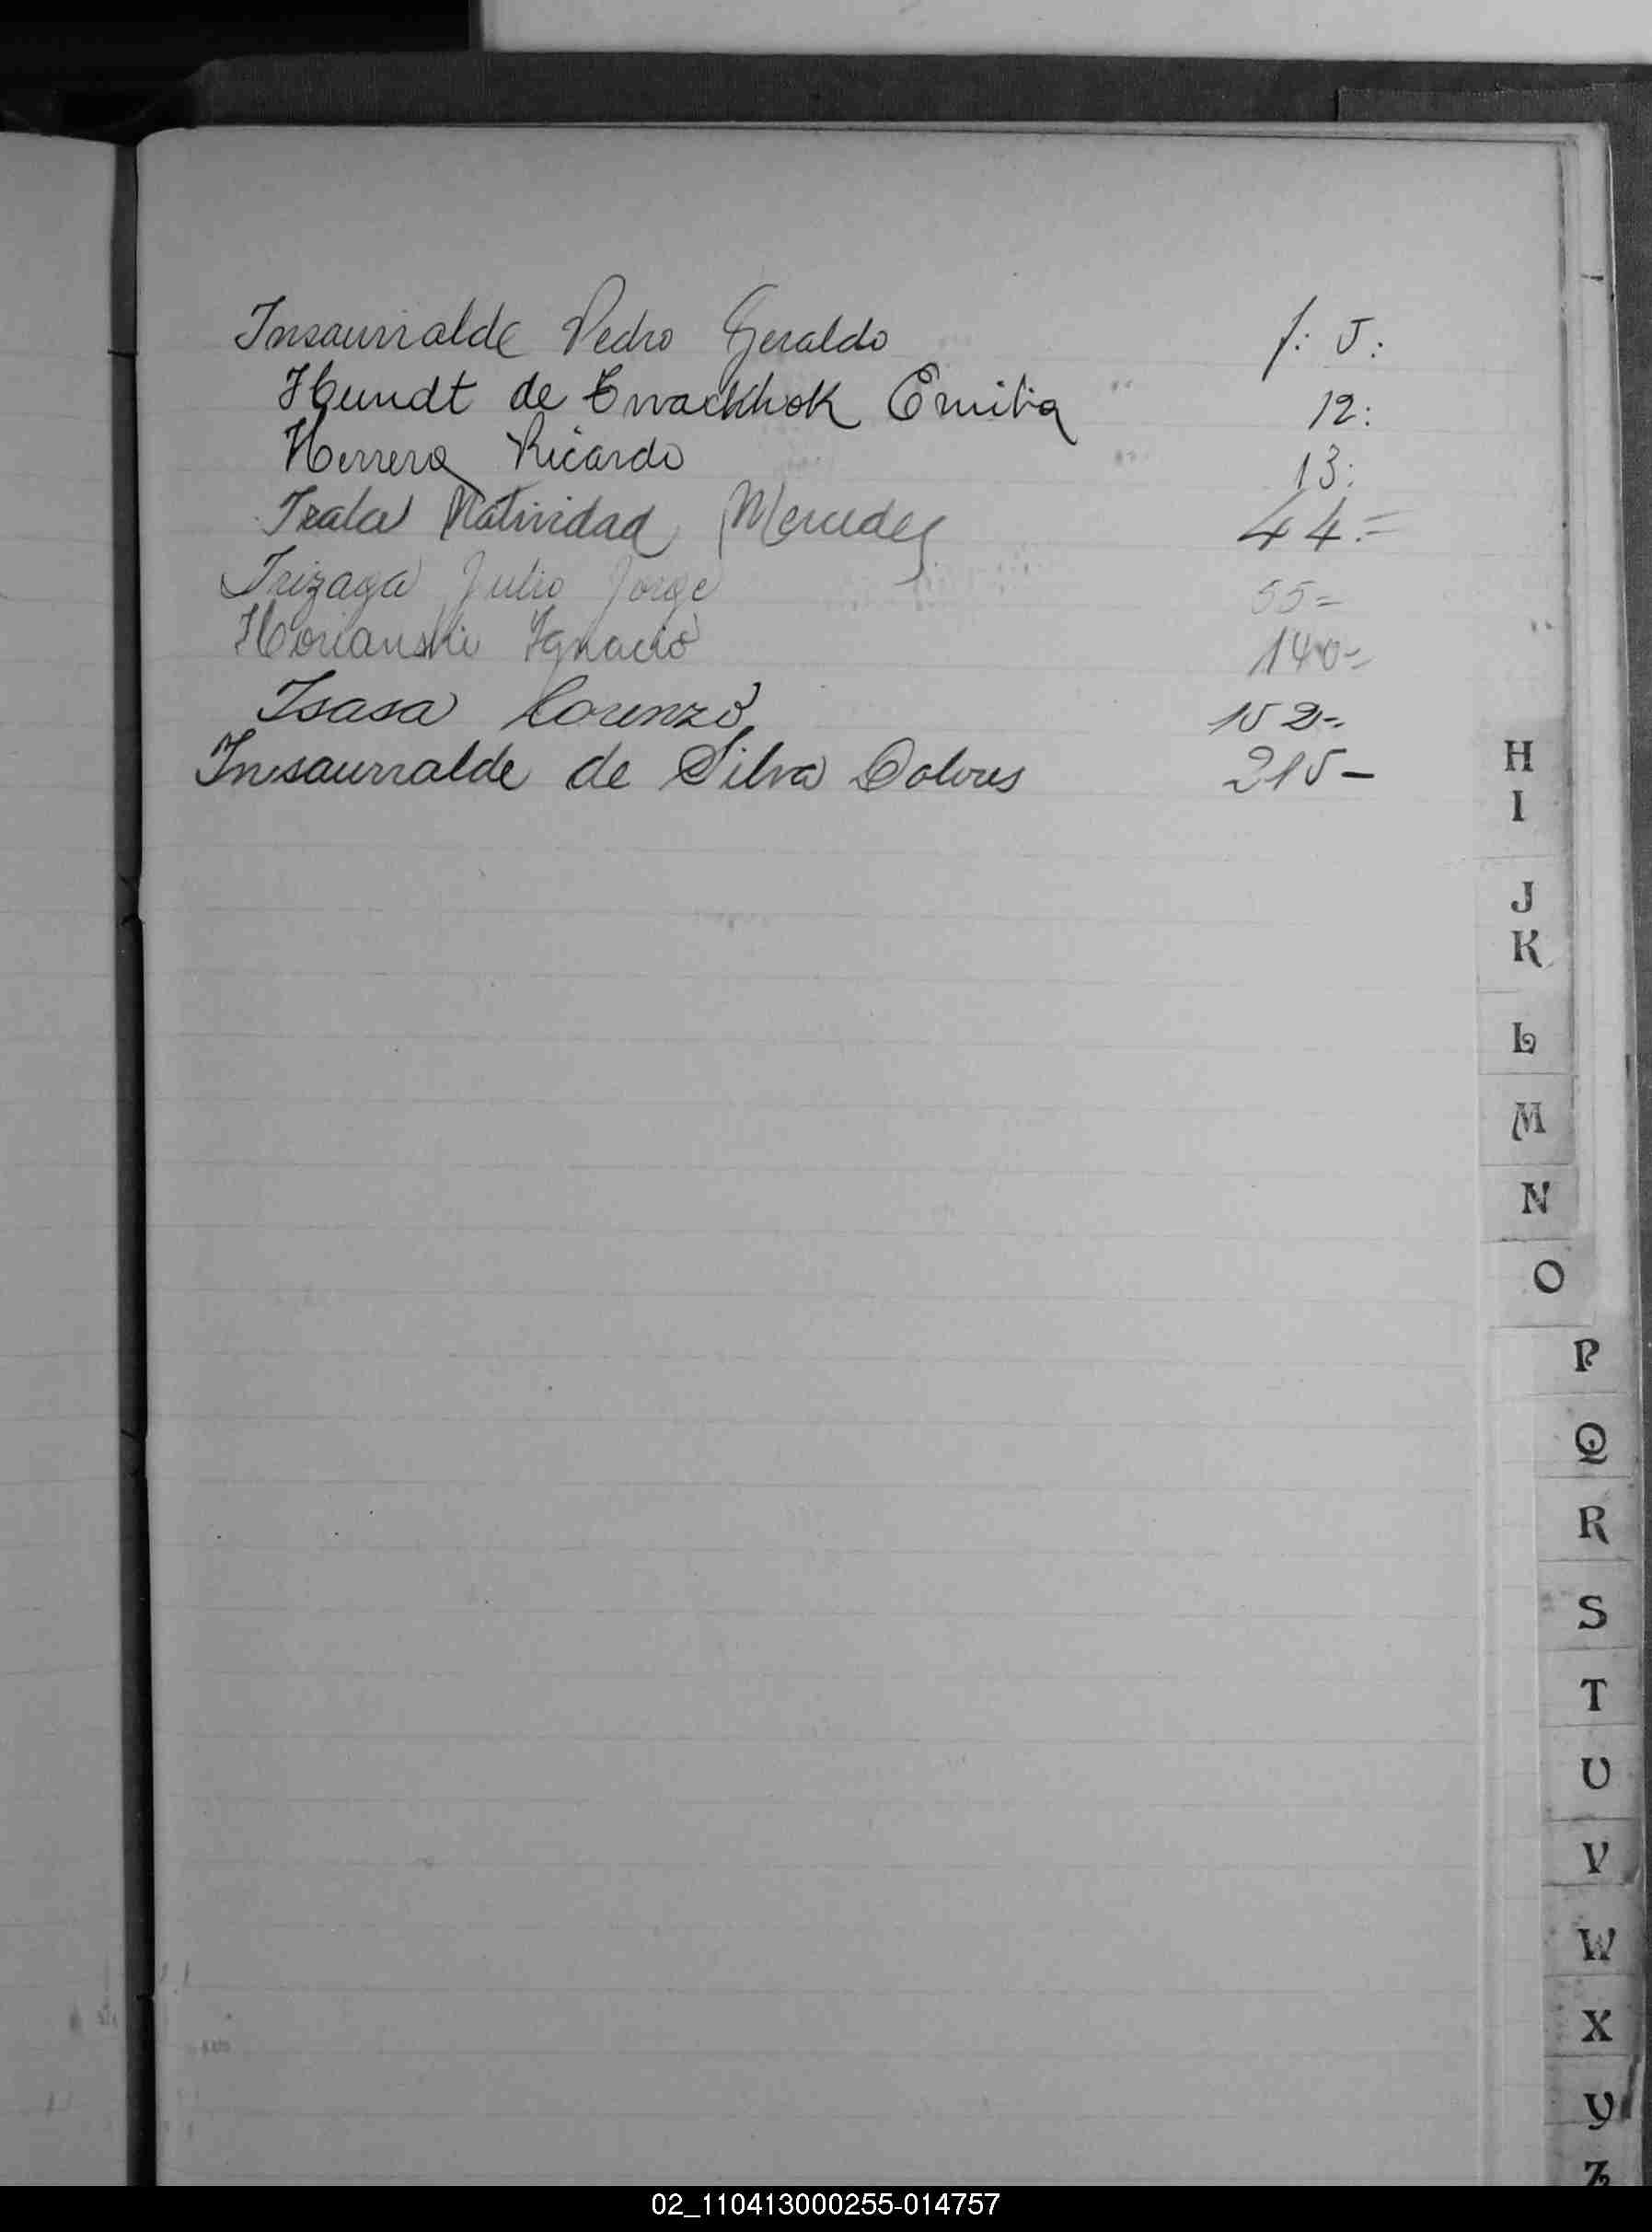 Insaurralde Pedro Geraldo f: 5:
Hundt de Emilia 12:
Herrera Ricardo 13:
Irala Natividad Mercedes 44.=
Irizaga Julio Jorge 55=
Horianski Ignacio 140-
Isasa Lorenzo 152-.
Insaurralde de Silva Dolores 215-
H
I
J
K
L
M
N
O
P
Q
R
S
T
U
V
W
X
Y
Z
02_110413000255-014757